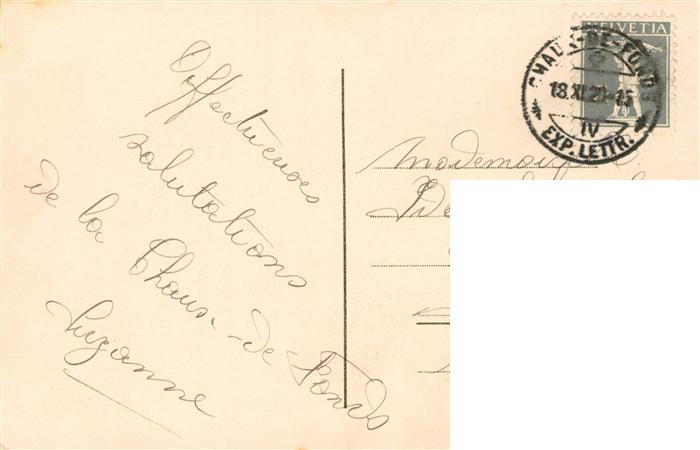 Affectueuses
salutations
de la Chaux-de-Fonds
Suzanne
HELVETIA
CHAUX-DE-FONDS
18.XI.21-15
IV
EXP. LETTR.
Mademoise